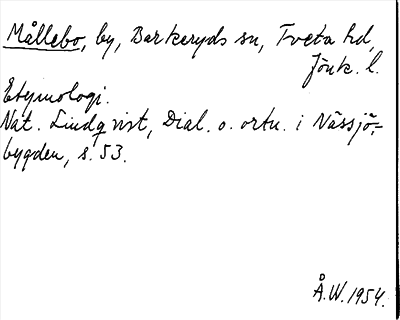 Mållebo, by, Barkeryds sn, Tveta hd,
Jönk. l.
Etymologi.
Nat. Lindqvist, Dial. o. ortn. i Nässjö-
bygden, s. 53.
Å.W. 1954.